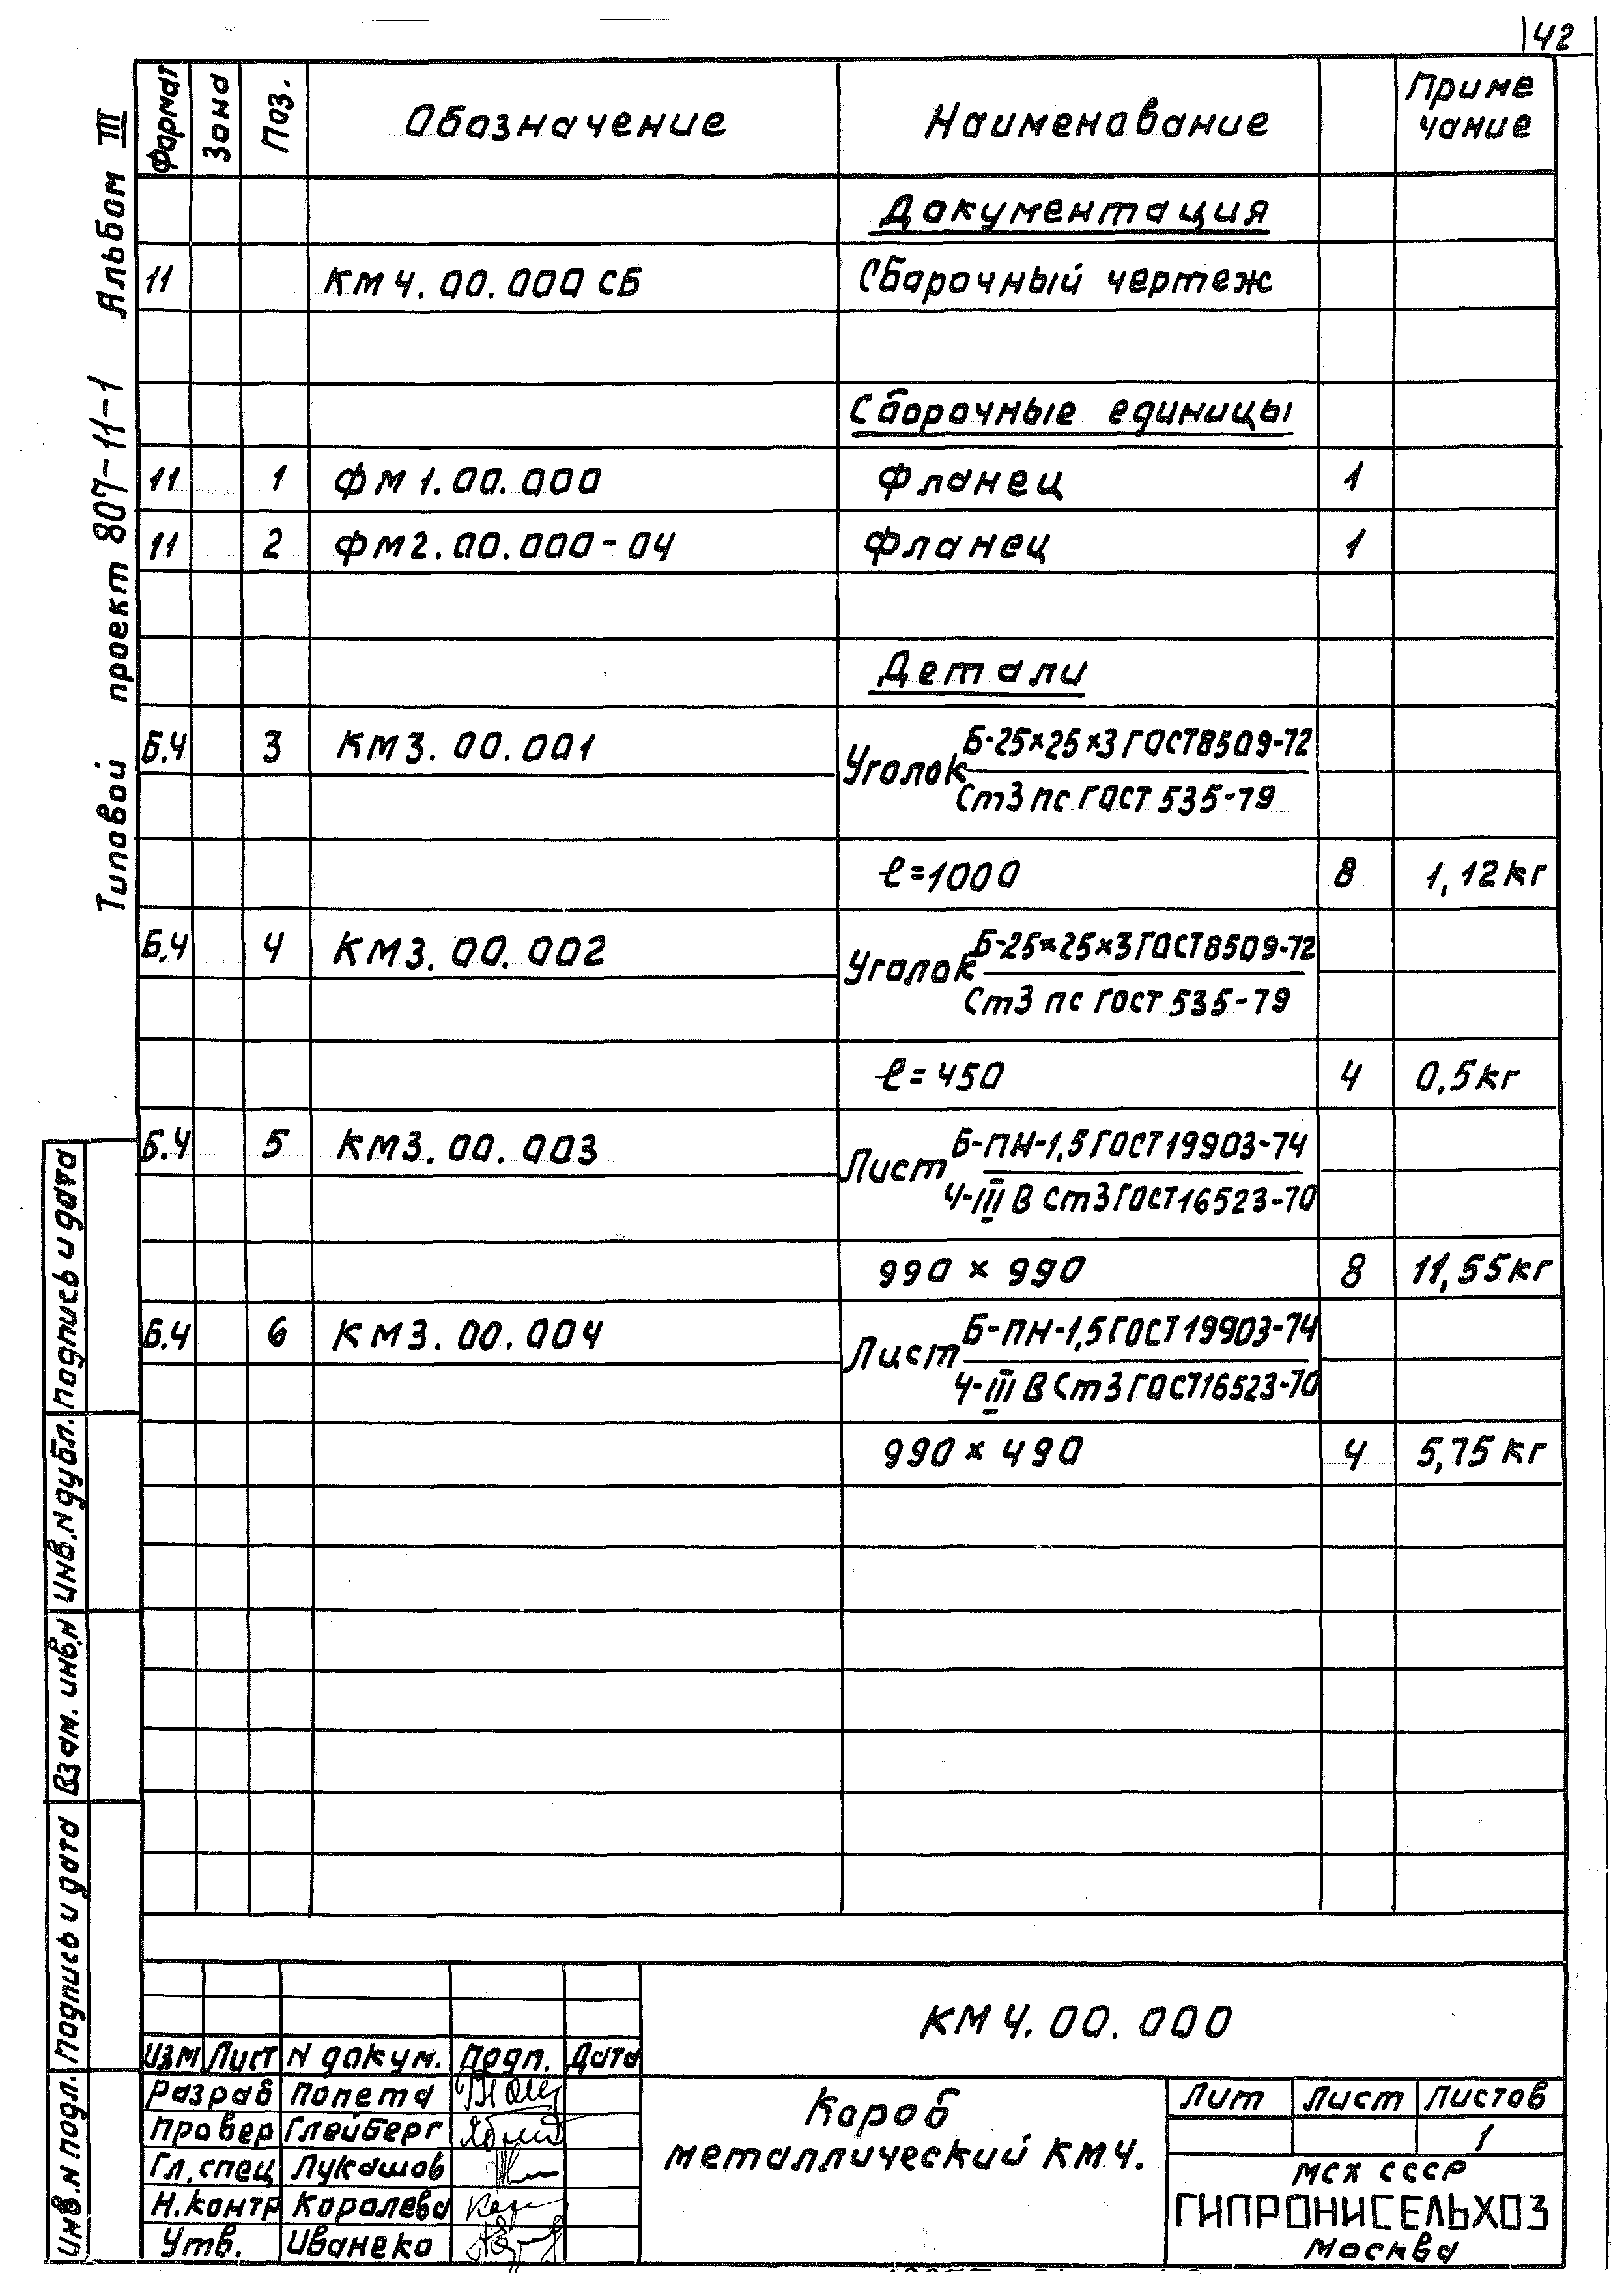 42
Типовой проект 807-11-1 Альбом III
Формат Зона Поз. Обозначение Наименование Приме
чание
Документация
11 КМ4.00.000 СБ Сборочный чертеж
Сборочные единицы
11 1 ФМ1.00.000 Фланец 1
11 2 ФМ2.00.000-04 Фланец 1
Детали
Б.Ч 3 КМ3.00.001 Уголок Б-25×25×3 ГОСТ 8509-72
Ст3 пс ГОСТ 535-79
ℓ=1000 8 1,12 кг
Б.Ч 4 КМ3.00.002 Уголок Б-25×25×3 ГОСТ 8509-72
Ст3 пс ГОСТ 535-79
ℓ=450 4 0,5 кг
Б.Ч 5 КМ3.00.003 Лист Б-ПН-1,5 ГОСТ 19903-74
4-III В Ст3 ГОСТ 16523-70
990 × 990 8 11,55 кг
Б.Ч 6 КМ3.00.004 Лист Б-ПН-1,5 ГОСТ 19903-74
4-III В Ст3 ГОСТ 16523-70
990 × 490 4 5,75 кг
Подпись и дата
Инв. N дубл.
Взам. инв. N
Подпись и дата
Инв. N подл.
КМ4.00.000
Изм Лист N докум. Подп. Дата
Разраб Попета
Провер Глейберг
Гл. спец Лукашов
Н. контр Королева
Утв. Иванеко
Короб
металлический КМ4.
Лит Лист Листов
1
МСХ СССР
ГИПРОНИСЕЛЬХОЗ
Москва